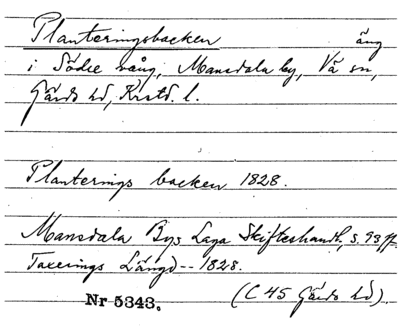 Planteringsbacken äng
i Södre vång, Mansdala by, Vä sn,
Gärds hd, Kristd. l.
Planterings backen 1828.
Mansdala Bys Laga Skifteshandl., s. 93 ff.
Taxerings Längd -- 1828.
Nr 5343. (C 45 Gärds hd).